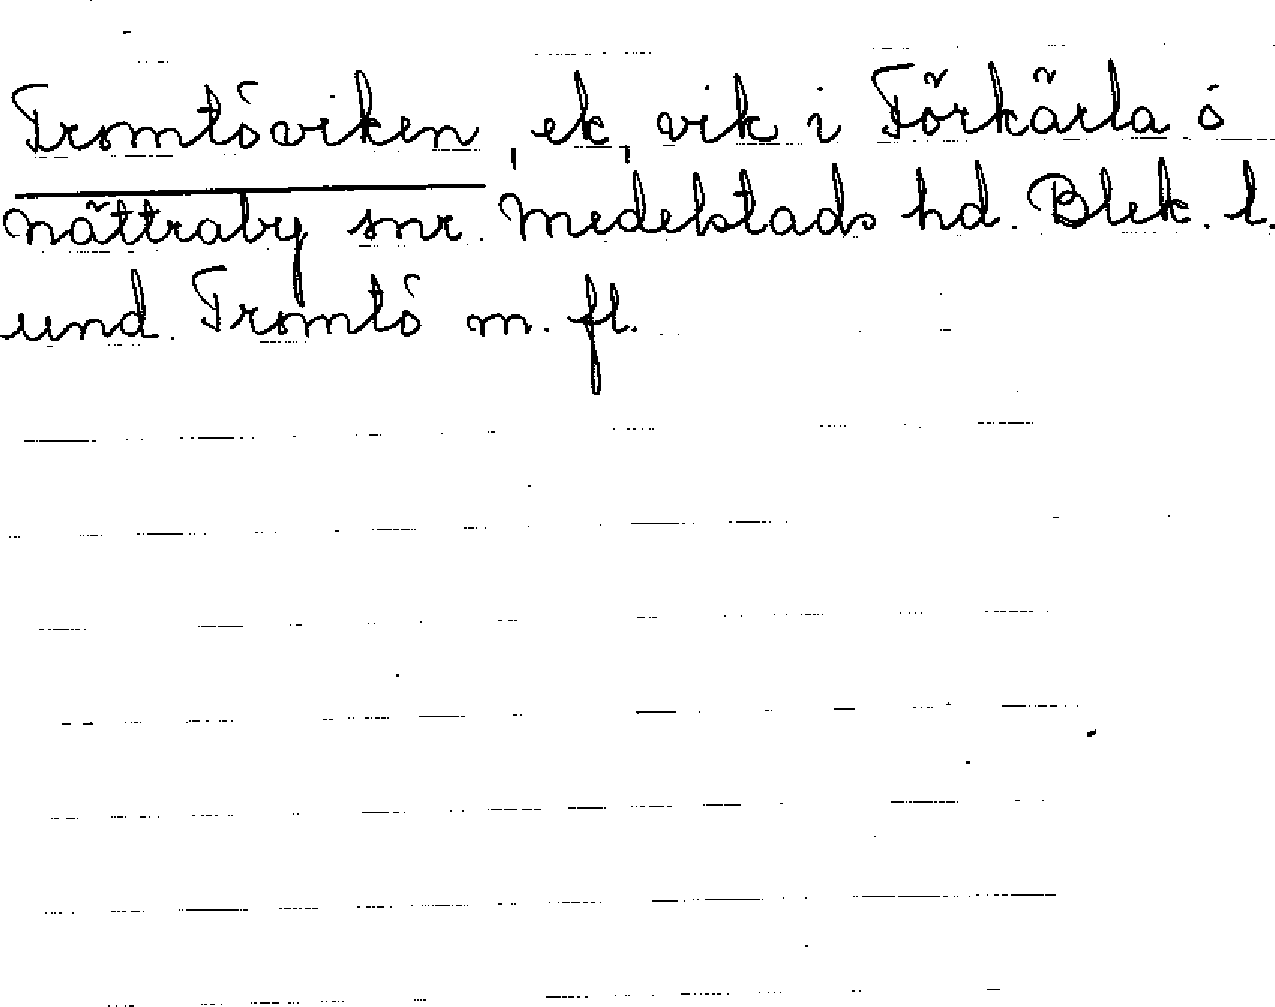 Tromtöviken, ek, vik i Förkärla ó
Nättraby snr. Medelstads hd. Blek. l.
und. Tromtö m. fl.